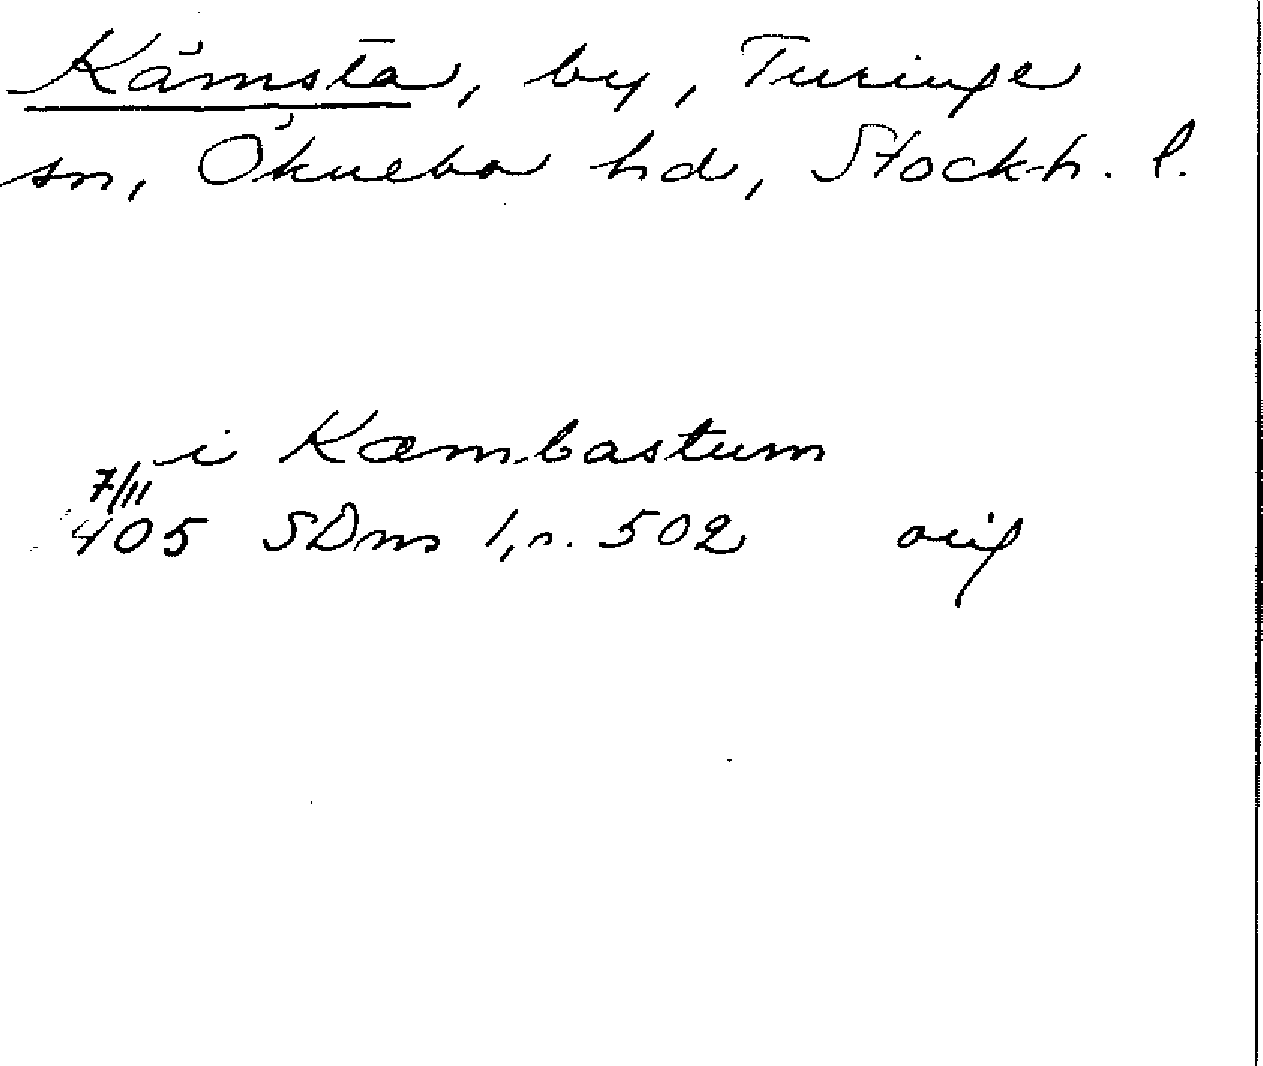 Kämsta, by, Turinge
sn, Öknebo hd, Stockh. l.
i Kæmbastum
7/11
405 SDns 1, n. 502 orig